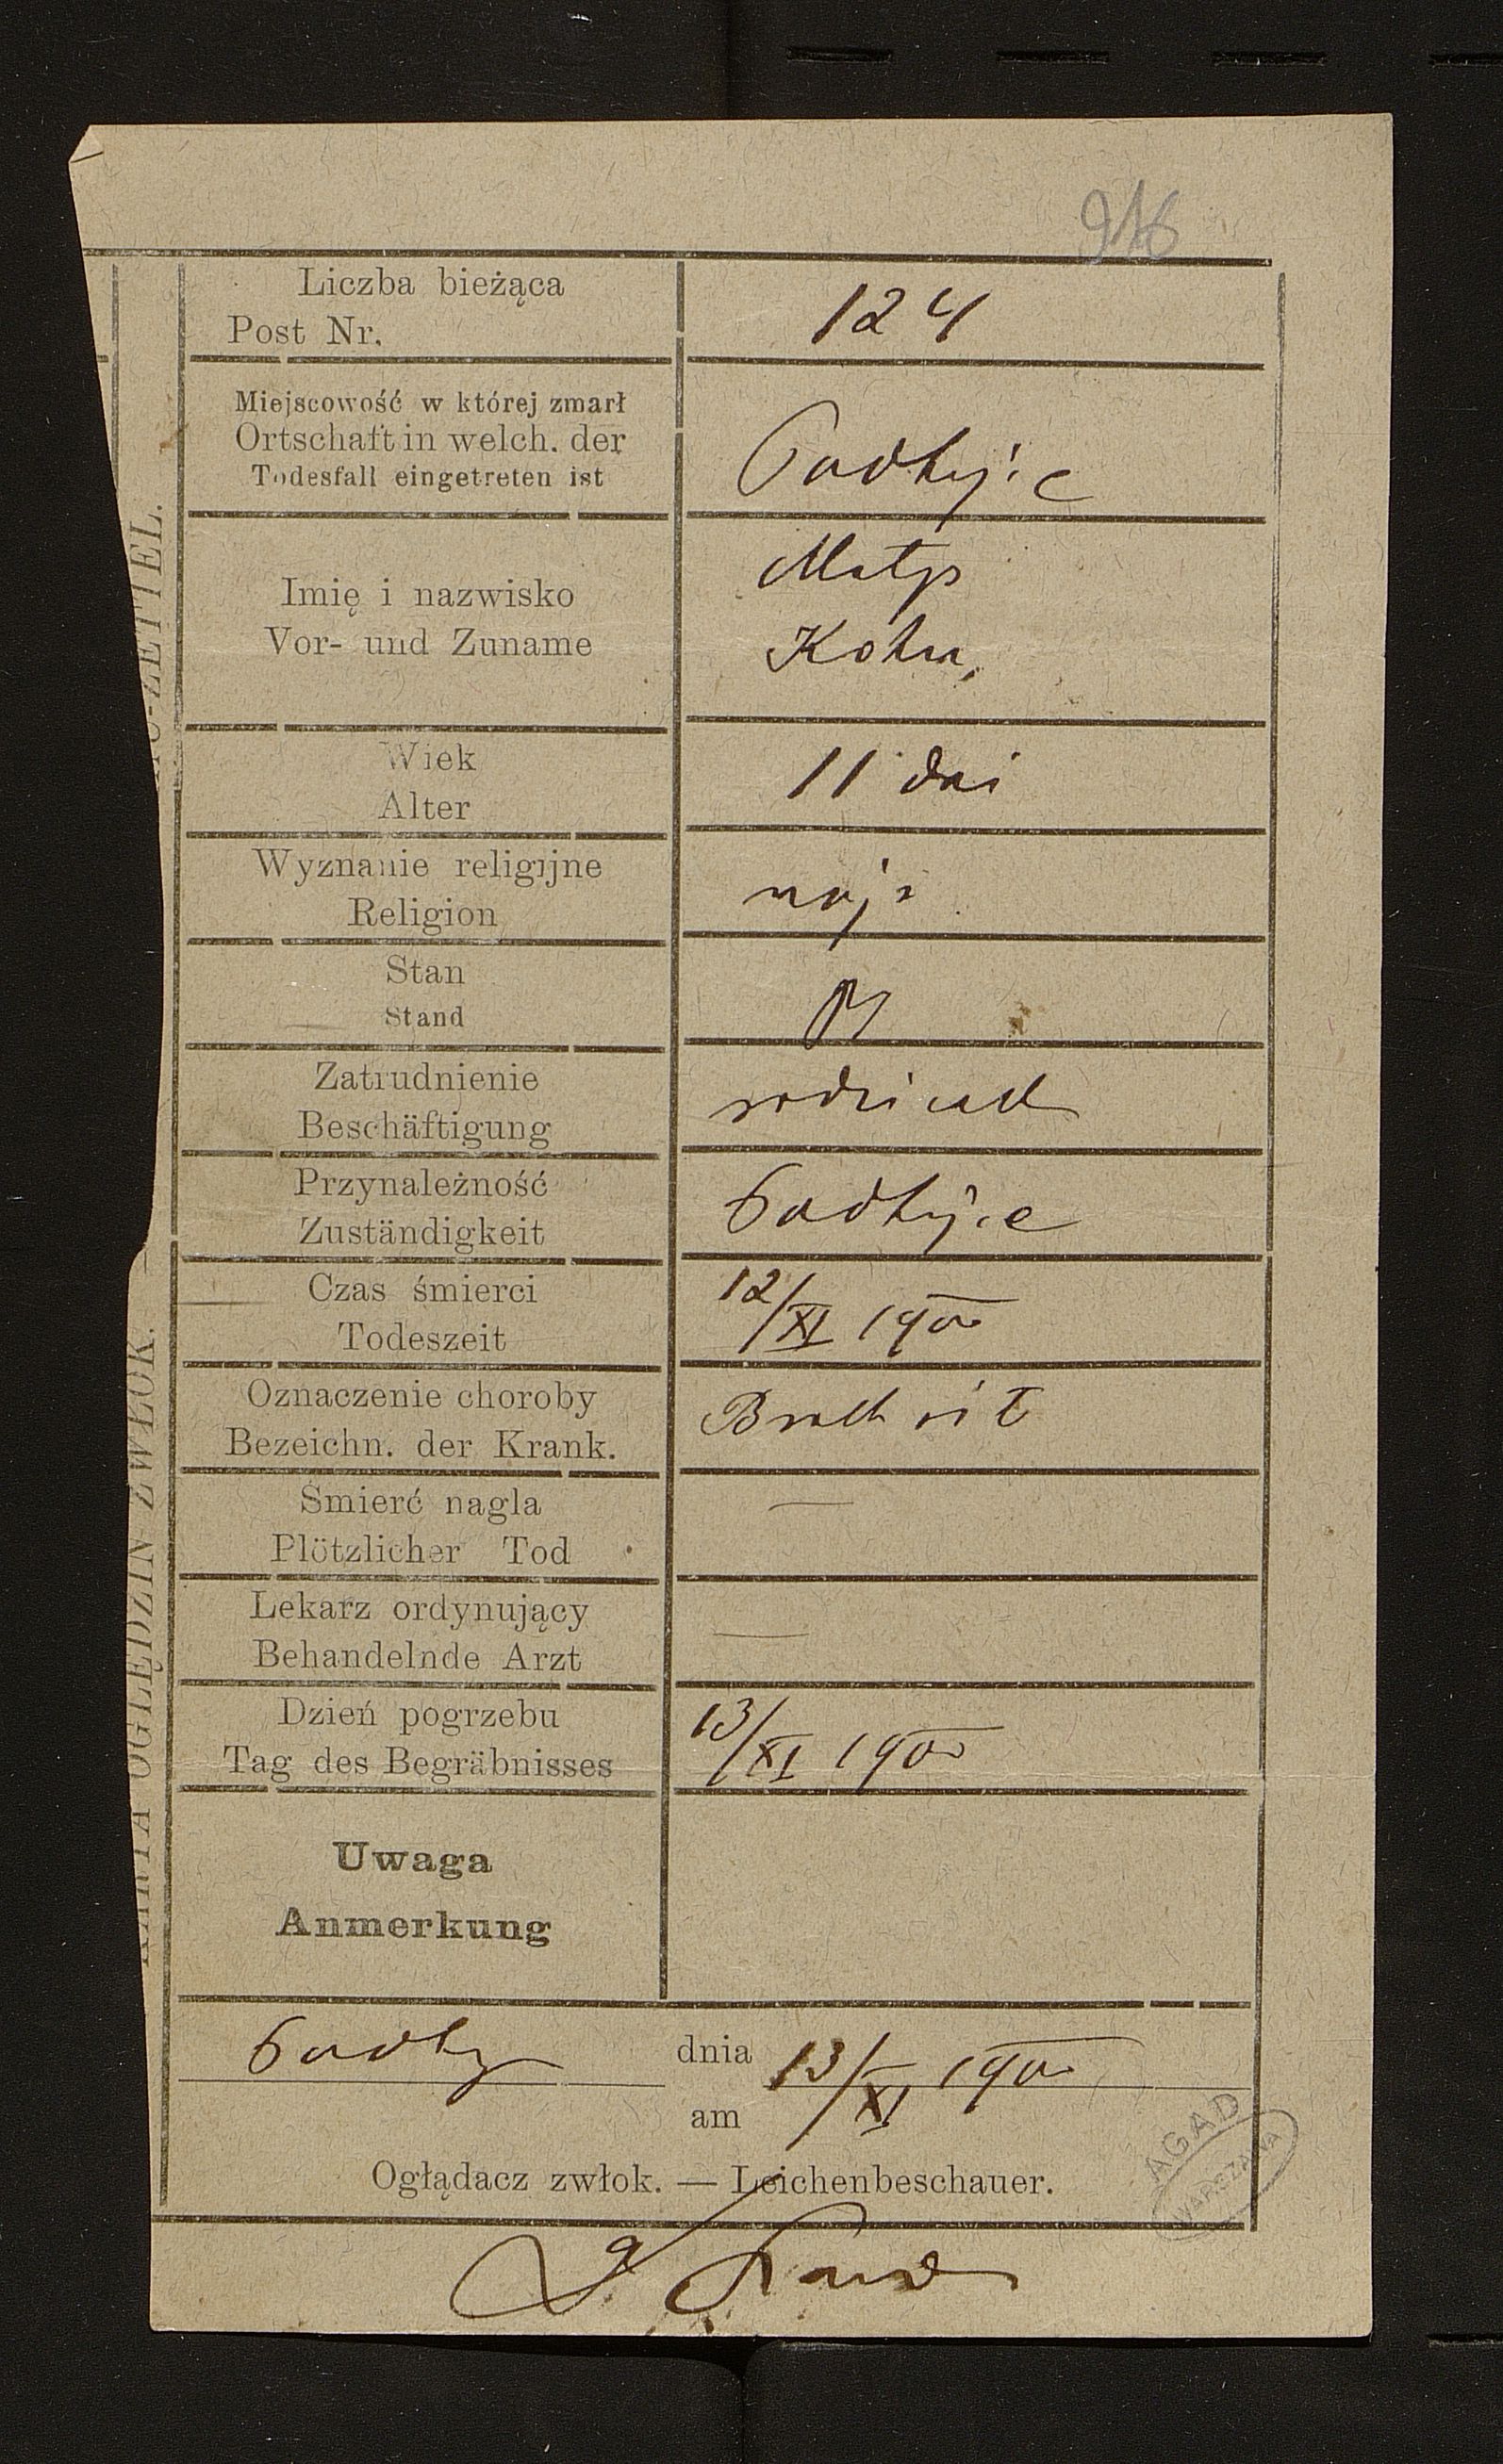 916
Liczba bieżąca
Post Nr.
124
Miejscowość w której zmarł
Ortschaft in welch. der
Todesfall eingetreten ist
Imię i nazwisko
Vor- und Zuname
Kohn
Wiek
Alter
11 dni
Wyznanie religijne
Religion
mojż
Stan
Stand
Zatrudnienie
Beschäftigung
Przynależność
Zuständigkeit
Czas śmierci
Todeszeit
12/XI 1900
Oznaczenie choroby
Bezeichn. der Krank.
Smierć nagla
Plötzlicher Tod
—
Lekarz ordynujący
Behandelnde Arzt
—
Dzień pogrzebu
Tag des Begräbnisses
13/XI 1900
Uwaga
Anmerkung
dnia 13/XI 1900
am
Oglądacz zwłok. — Leichenbeschauer.
KARTA OGLĘDZIN ZWŁOK. —
ZETTEL.
AGAD
WARSZAWA